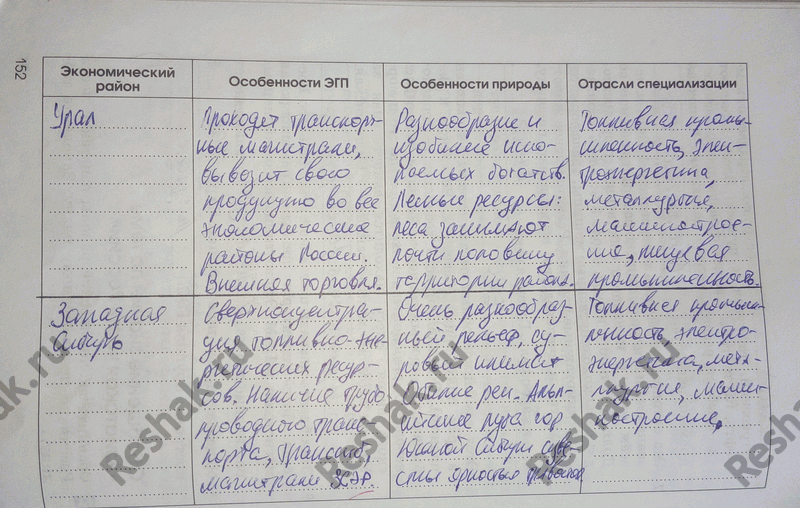 152
Экономический район
Особенности ЭГП
Особенности природы
Отрасли специализации
Урал
Проходят транспорт-
ные магистрали,
вывозит свою
продукцию во все
экономические
районы России.
Внешняя торговля.
Разнообразие и
изобилие иско-
паемых богатств.
Лесные ресурсы:
леса занимают
почти половину
территории района.
Топливная промы-
шленность, элек-
троэнергетика,
металлургия,
машинострое-
ние, пищевая
промышленность.
Западная
Сибирь
Сверхконцентра-
ция топливно-эне-
ргетических ресур-
сов. Наличие трубо
проводного транс-
порта, трансиб.
магистрали
Очень разнообраз-
ный рельеф, су-
ровый климат
Обилие рек. Альп-
ийские луга гор
Южной Сибири
яркостью
Топливная промыш-
ленность, электро-
энергетика, мета-
ллургия, машин-
ностроение,
Reshak.ru
Reshak.ru
Reshak.ru
Reshak.ru
Reshak.ru
ak.ru